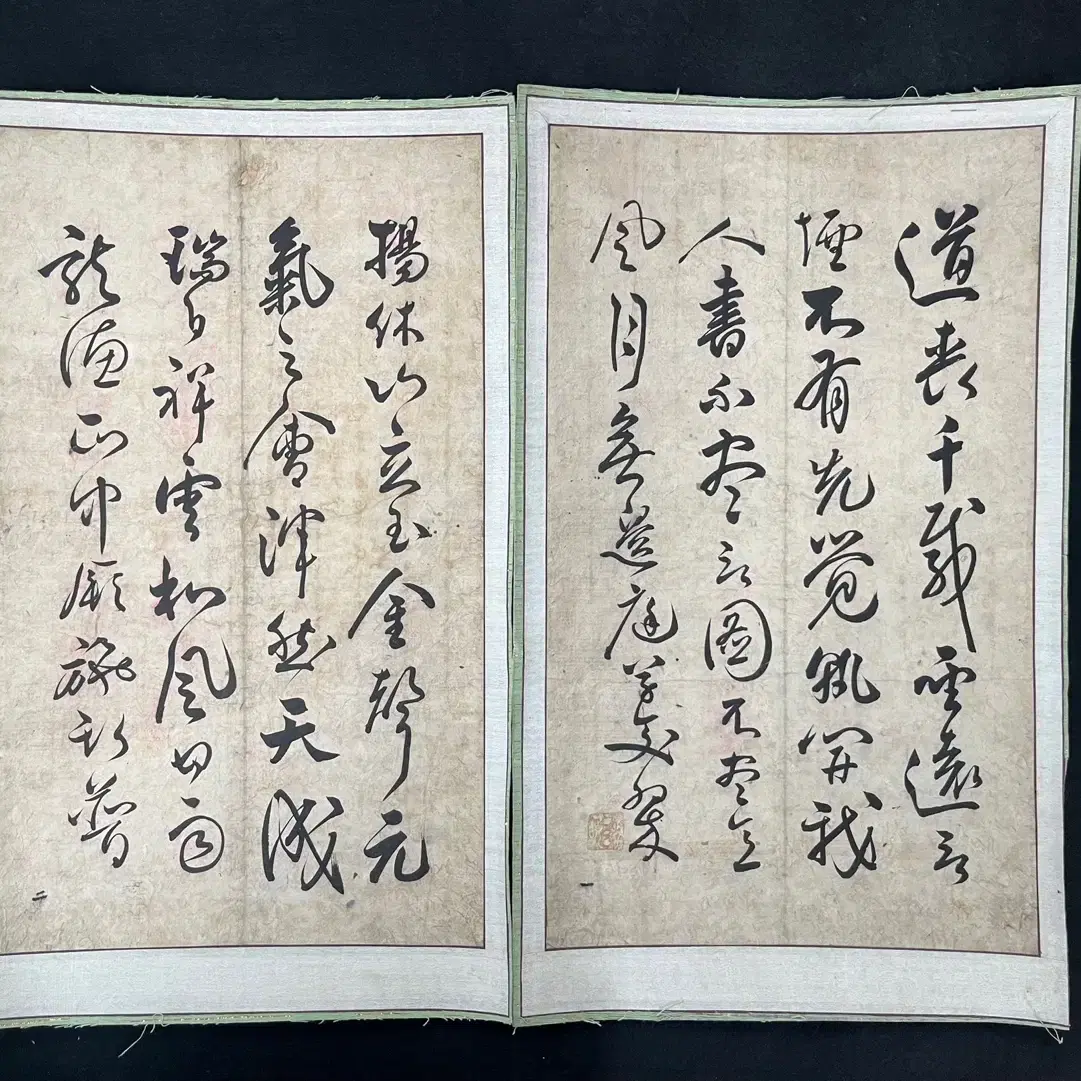 道喪千載聖遠言
堙不有先覺孰開我
人書不盡言圖不盡意
風月無邊庭草交翠
一
揚休山立玉金聲元
氣之會渾然天成
瑞日祥雲和風甘雨
龍德正中厥施斯普
二